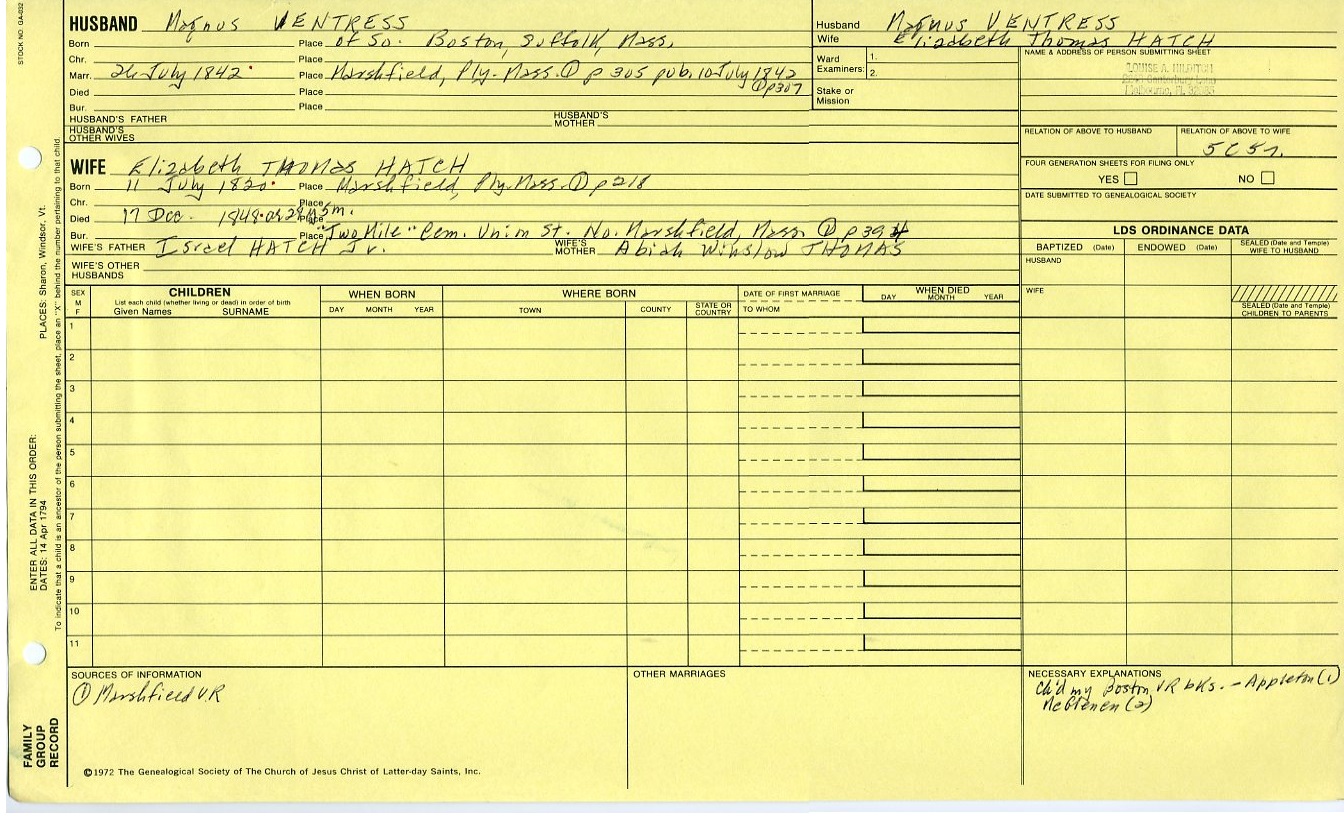 STOCK NO. GA-032
HUSBAND Magnus VENTRESS
Born Place of So. Boston, Suffolk, Mass.
Chr. Place
Marr. 26 July 1842 Place Marshfield, Ply-Mass. ① p 305 pub. 10 July 1842
① p307
Died Place
Bur. Place
HUSBAND'S FATHER HUSBAND'S MOTHER
HUSBAND'S OTHER WIVES
Husband Magnus VENTRESS
Wife Elizabeth Thomas HATCH
Ward Examiners: 1.
2.
Stake or Mission
NAME & ADDRESS OF PERSON SUBMITTING SHEET
LOUISE A.
Canterbury Lane
Melbourne, FL
RELATION OF ABOVE TO HUSBAND RELATION OF ABOVE TO WIFE
5C5r.
FOUR GENERATION SHEETS FOR FILING ONLY
YES NO
DATE SUBMITTED TO GENEALOGICAL SOCIETY
WIFE Elizabeth THOMAS HATCH
Born 11 July 1820 Place Marshfield, Ply-Mass. ① p218
Chr. Place
Died 17 Dec. 1848 or Place
Bur. Place "Two Mile" Cem. Union St. No. Marshfield, Mass. ① p394
WIFE'S FATHER Israel HATCH Jr. WIFE'S MOTHER Abiah Winslow THOMAS
WIFE'S OTHER HUSBANDS
LDS ORDINANCE DATA
BAPTIZED (Date) ENDOWED (Date) SEALED (Date and Temple) WIFE TO HUSBAND
HUSBAND
WIFE
SEALED (Date and Temple) CHILDREN TO PARENTS
SEX M F
CHILDREN
List each child (whether living or dead) in order of birth
Given Names SURNAME
WHEN BORN
DAY MONTH YEAR
WHERE BORN
TOWN COUNTY STATE OR COUNTRY
DATE OF FIRST MARRIAGE
TO WHOM
WHEN DIED
DAY MONTH YEAR
1
2
3
4
5
6
7
8
9
10
11
SOURCES OF INFORMATION
① Marshfield V.R
OTHER MARRIAGES
NECESSARY EXPLANATIONS
ck'd my Boston VR bks. - Appleton (1)
McGlenen (2)
©1972 The Genealogical Society of The Church of Jesus Christ of Latter-day Saints, Inc.
FAMILY GROUP RECORD
ENTER ALL DATA IN THIS ORDER:
DATES: 14 Apr 1794
PLACES: Sharon, Windsor, Vt.
To indicate that a child is an ancestor of the person submitting the sheet, place an "X" behind the number pertaining to that child.